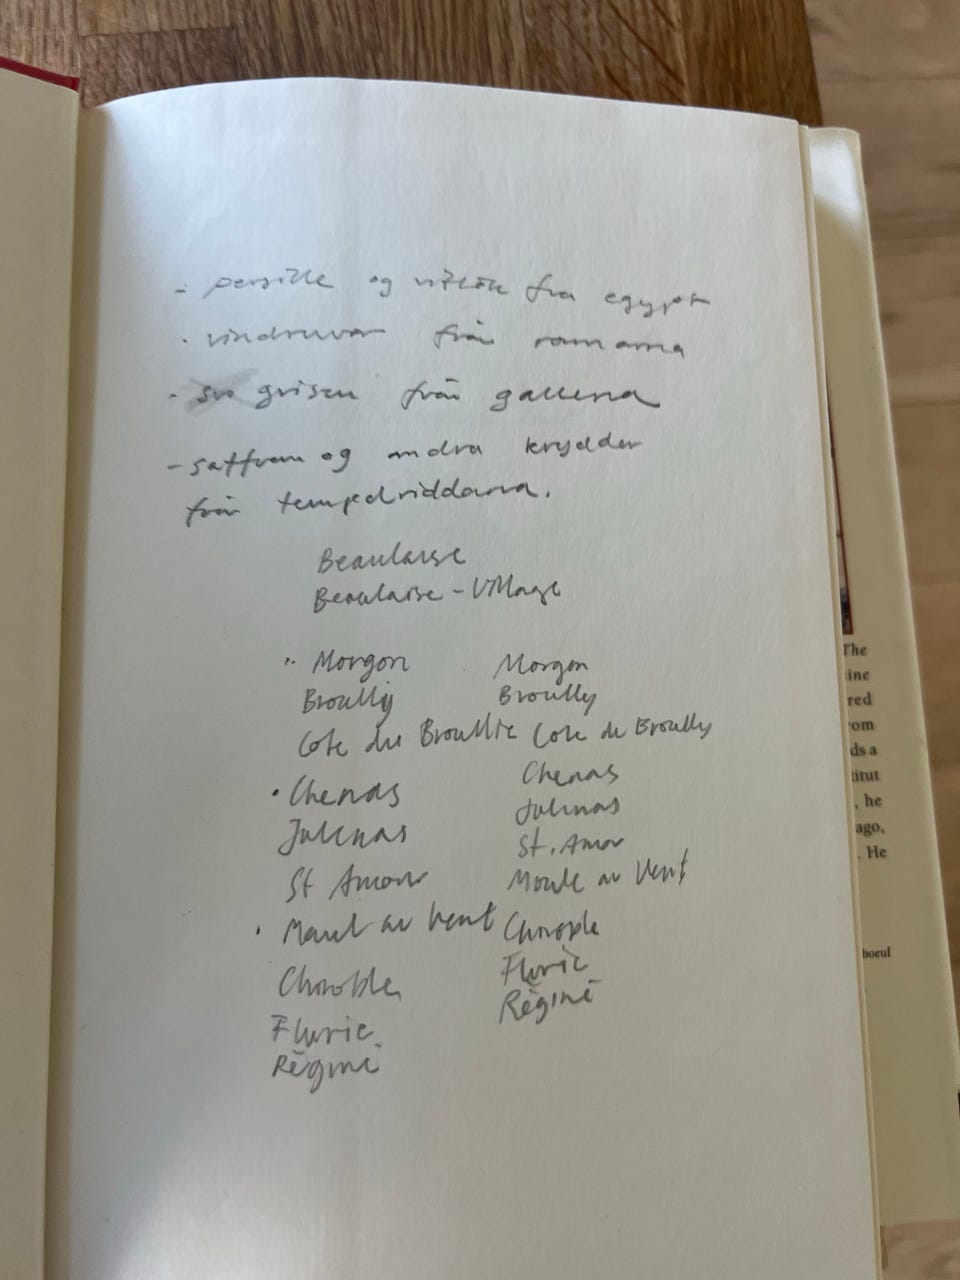 - persille og vitløk fra egypt
- vindruvor från romarna
- svi grisen från gallerna
- saffran og andra krydder
från tempelriddarna.
Beaulaise
Beaulaise - Village
Morgon Morgon
Broully Broully
Cote du Broullie Cote de Broully
• Chenas Chenas
Julinas Julinas
St Amour St. Amor
• Maul au Vent Moule au Vent
Chiroble Chirople
Fluric Fluric
Régine Régine
The
line
red
rom
ds a
titut
, he
ago,
. He
boeuf